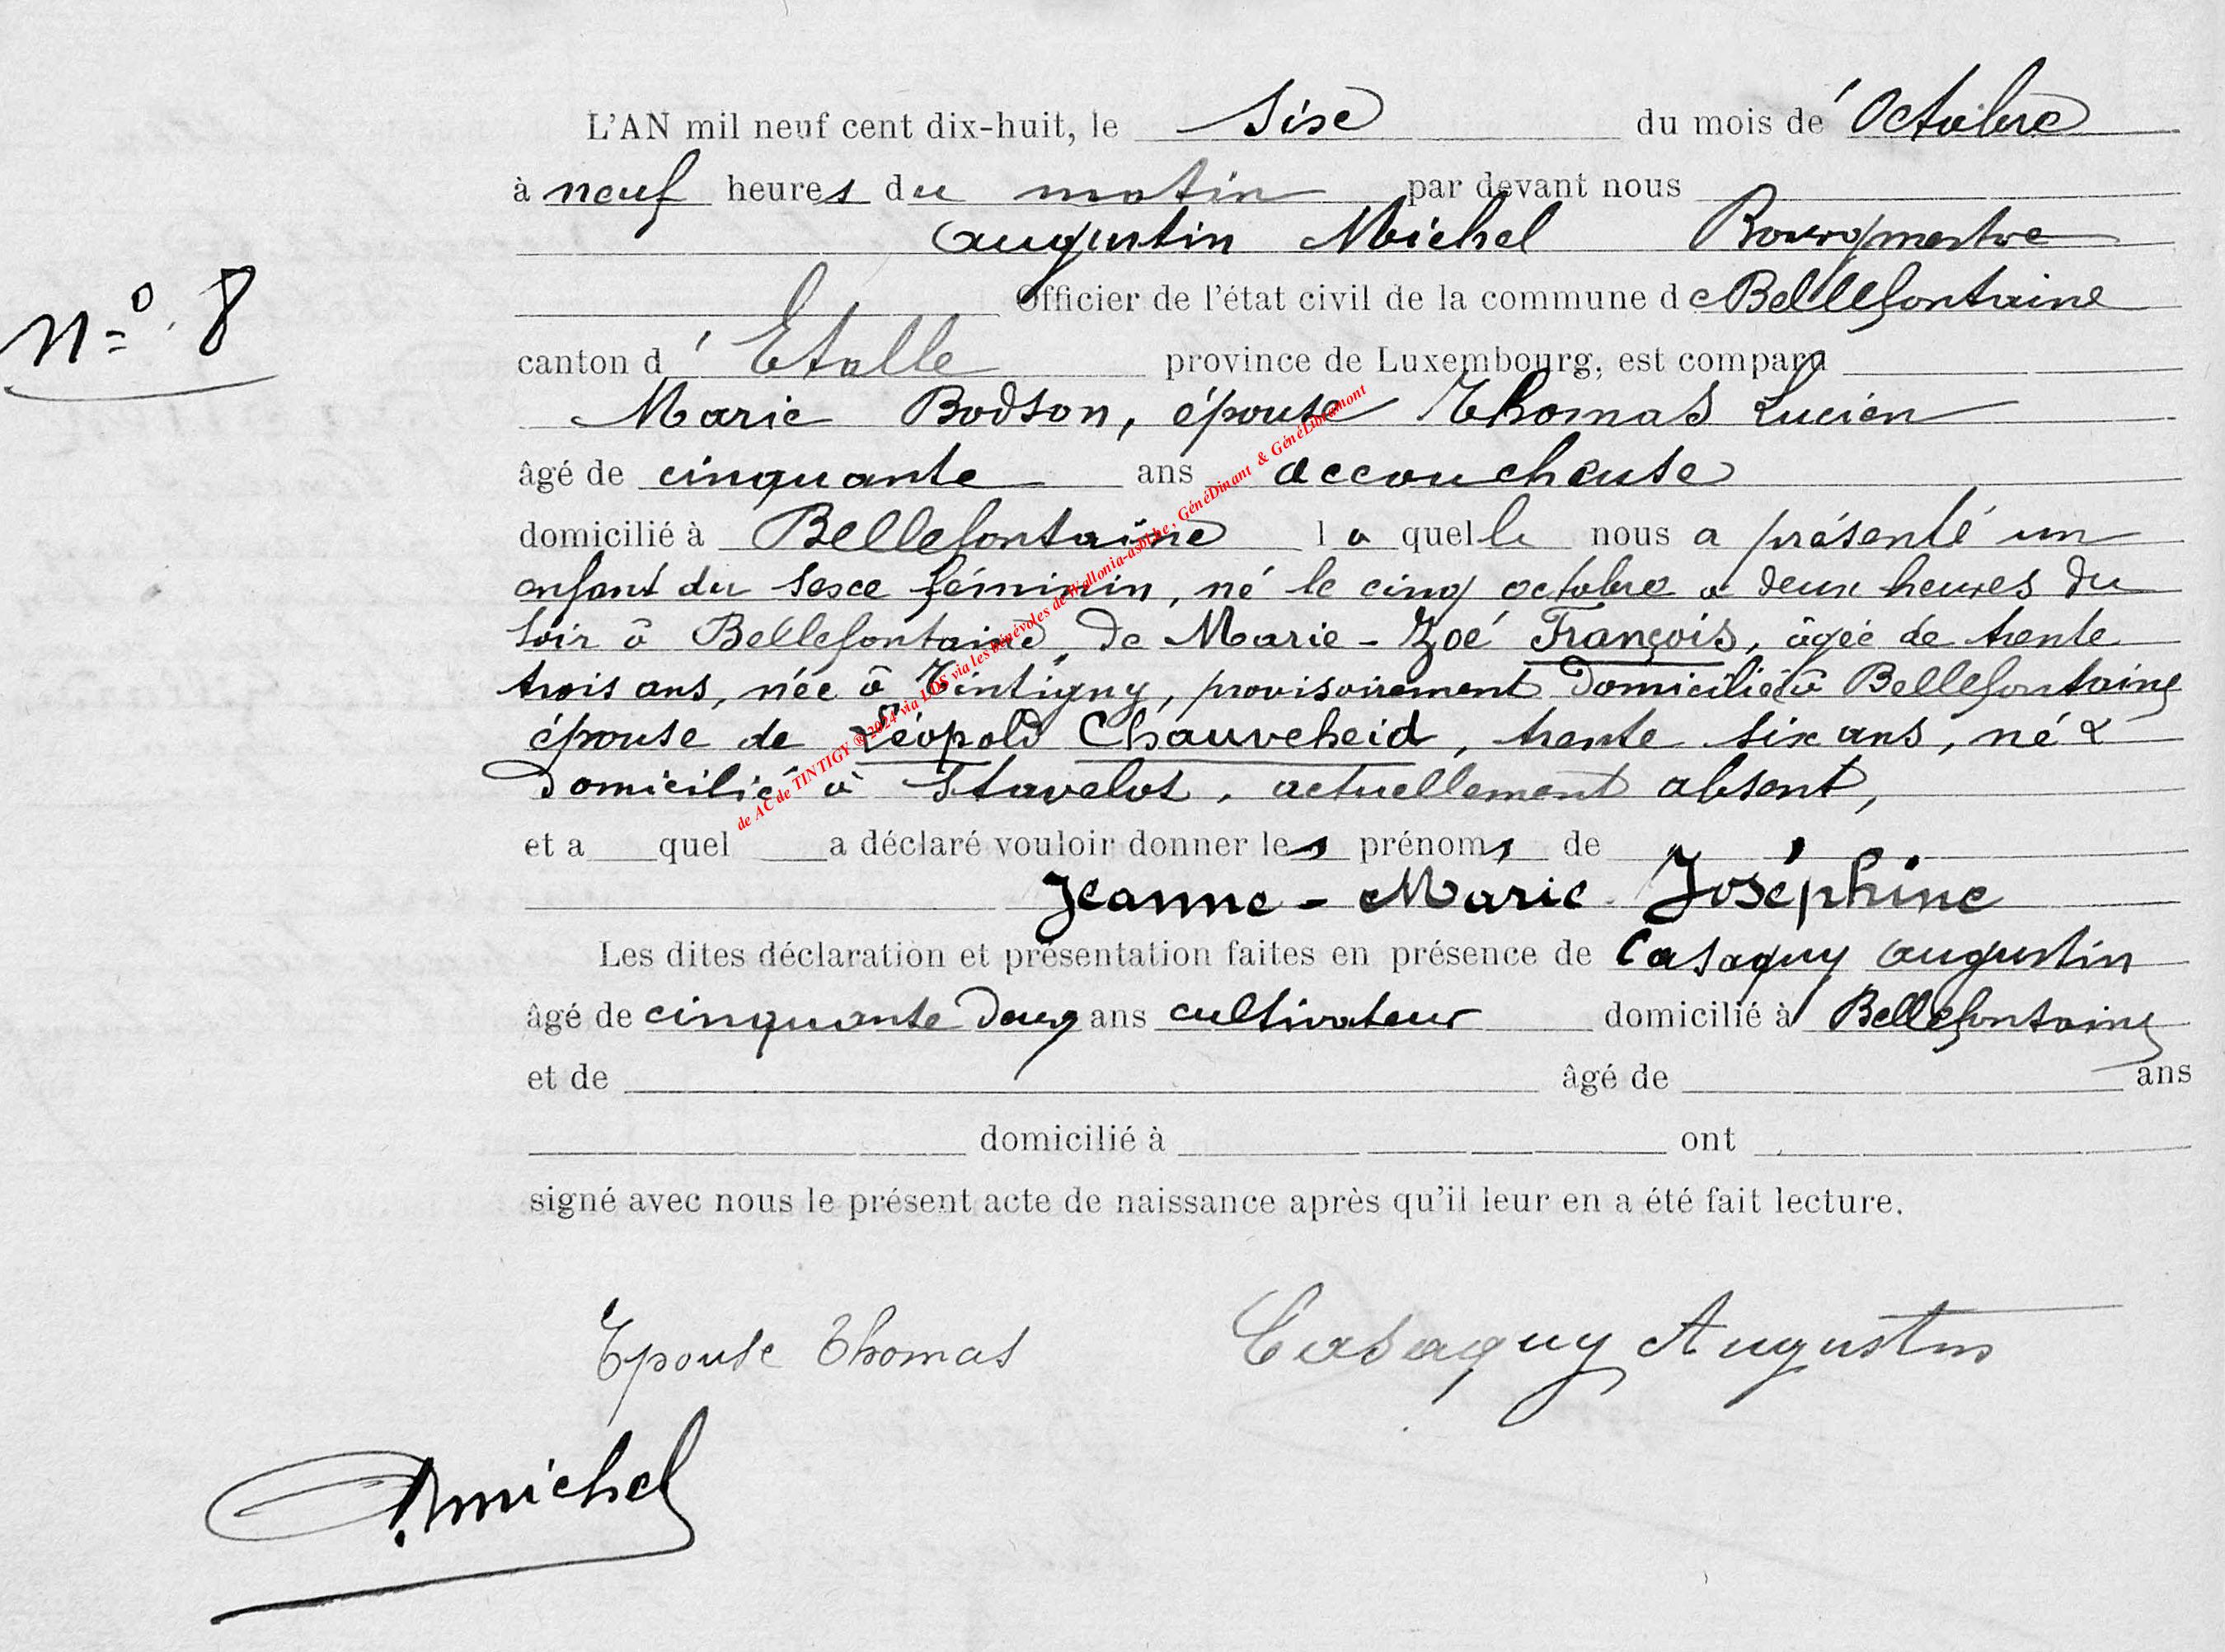 L'AN mil neuf cent dix-huit, le Six du mois de Octobre
à neuf heures du matin par devant nous
Augustin Michel Bourgmestre
Officier de l'état civil de la commune de Bellefontaine
N° 8
canton d'Etalle province de Luxembourg, est comparu
Marie Bodson, épouse Thomas Lucien
âgé de cinquante ans accoucheuse
domicilié à Bellefontaine la quelle nous a présenté un
enfant du sexe féminin, né le cinq octobre à deux heures du
soir à Bellefontaine, de Marie-Zoé François, âgée de trente
trois ans, née à Tintigny, provisoirement domiciliée à Bellefontaine
épouse de Léopold Chauveheid, trente six ans, né &
domicilié à Stavelot, actuellement absent,
et a quel a déclaré vouloir donner les prénoms de
Jeanne-Marie Joséphine
Les dites déclaration et présentation faites en présence de Casaquy Augustin
âgé de cinquante deux ans cultivateur domicilié à Bellefontaine
et de âgé de ans
domicilié à ont
signé avec nous le présent acte de naissance après qu'il leur en a été fait lecture.
Epouse Thomas Casaquy Augustin
AMichel
de AC de TINTIGY ® 2024 via LDS via les bénévoles de Wallonia-asbl.be, GénéDinant & GénéLibramont